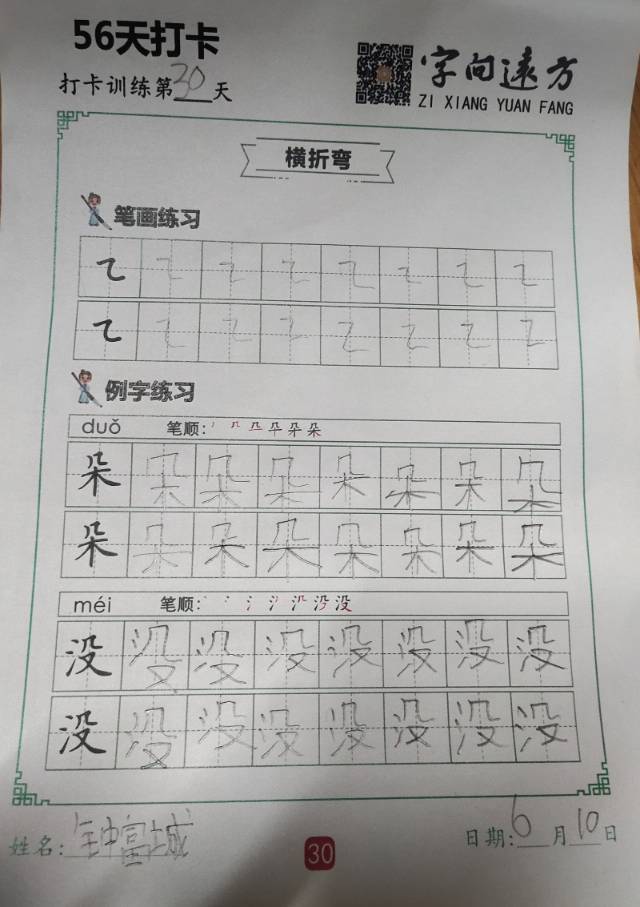 56天打卡
打卡训练第30天
字向远方
ZI XIANG YUAN FANG
横折弯
笔画练习
乙 乙 乙 乙 乙 乙 乙 乙
乙 乙 乙 乙 乙 乙 乙 乙
例字练习
duǒ 笔顺:
朵 朵 朵 朵 朵 朵 朵 朵
朵 朵 朵 朵 朵 朵 朵 朵
méi 笔顺:
没 没 没 没 没 没 没 没
没 没 没 没 没 没 没 没
姓名:
30
日期:6月10日